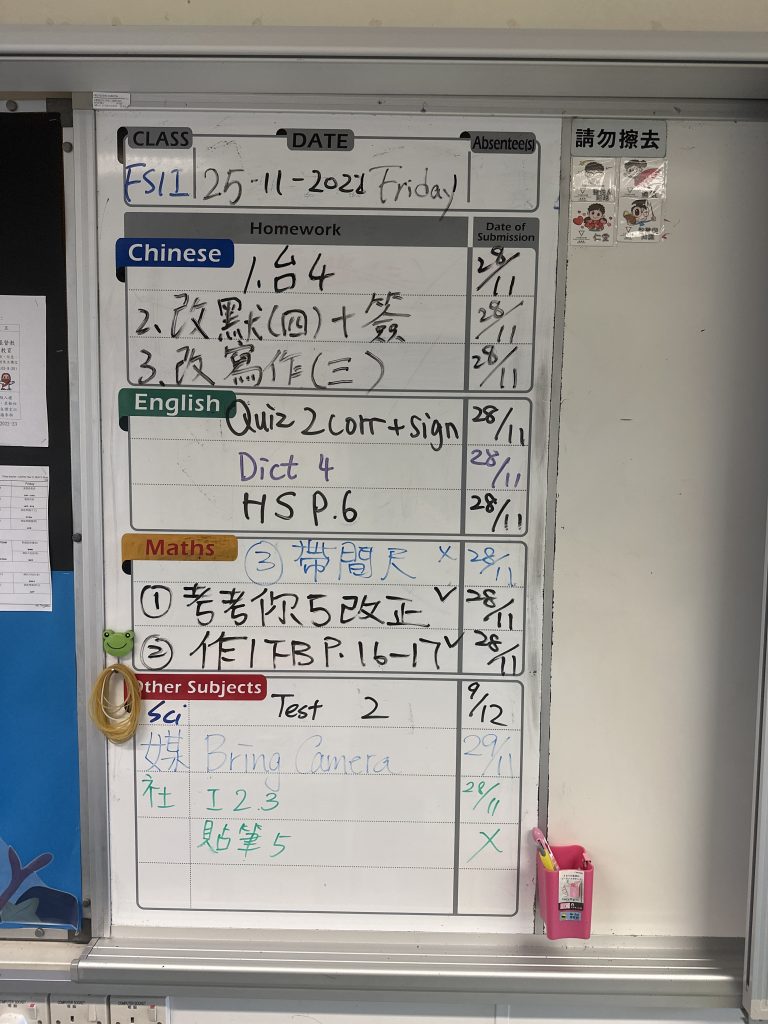 CLASS DATE Absentee(s)
FS1I 25-11-2022 Friday
請勿擦去
Homework Date of Submission
Chinese
1.台4 28/11
2.改默(四)+簽 28/11
3.改寫作(三) 28/11
English
Quiz 2 corr + sign 28/11
Dict 4 28/11
HS P.6 28/11
Maths
③ 帶間尺 x 28/11
① 考考你5改正 ✓ 28/11
② 作1TFB P.16-17 ✓ 28/11
Other Subjects
Sci Test 2 9/12
媒 Bring Camera 29/11
社 I 2.3 28/11
貼筆5 X
仁愛
COMPUTER SOCKET
COMPUTER SOCKET
COMPUTER SOCKET